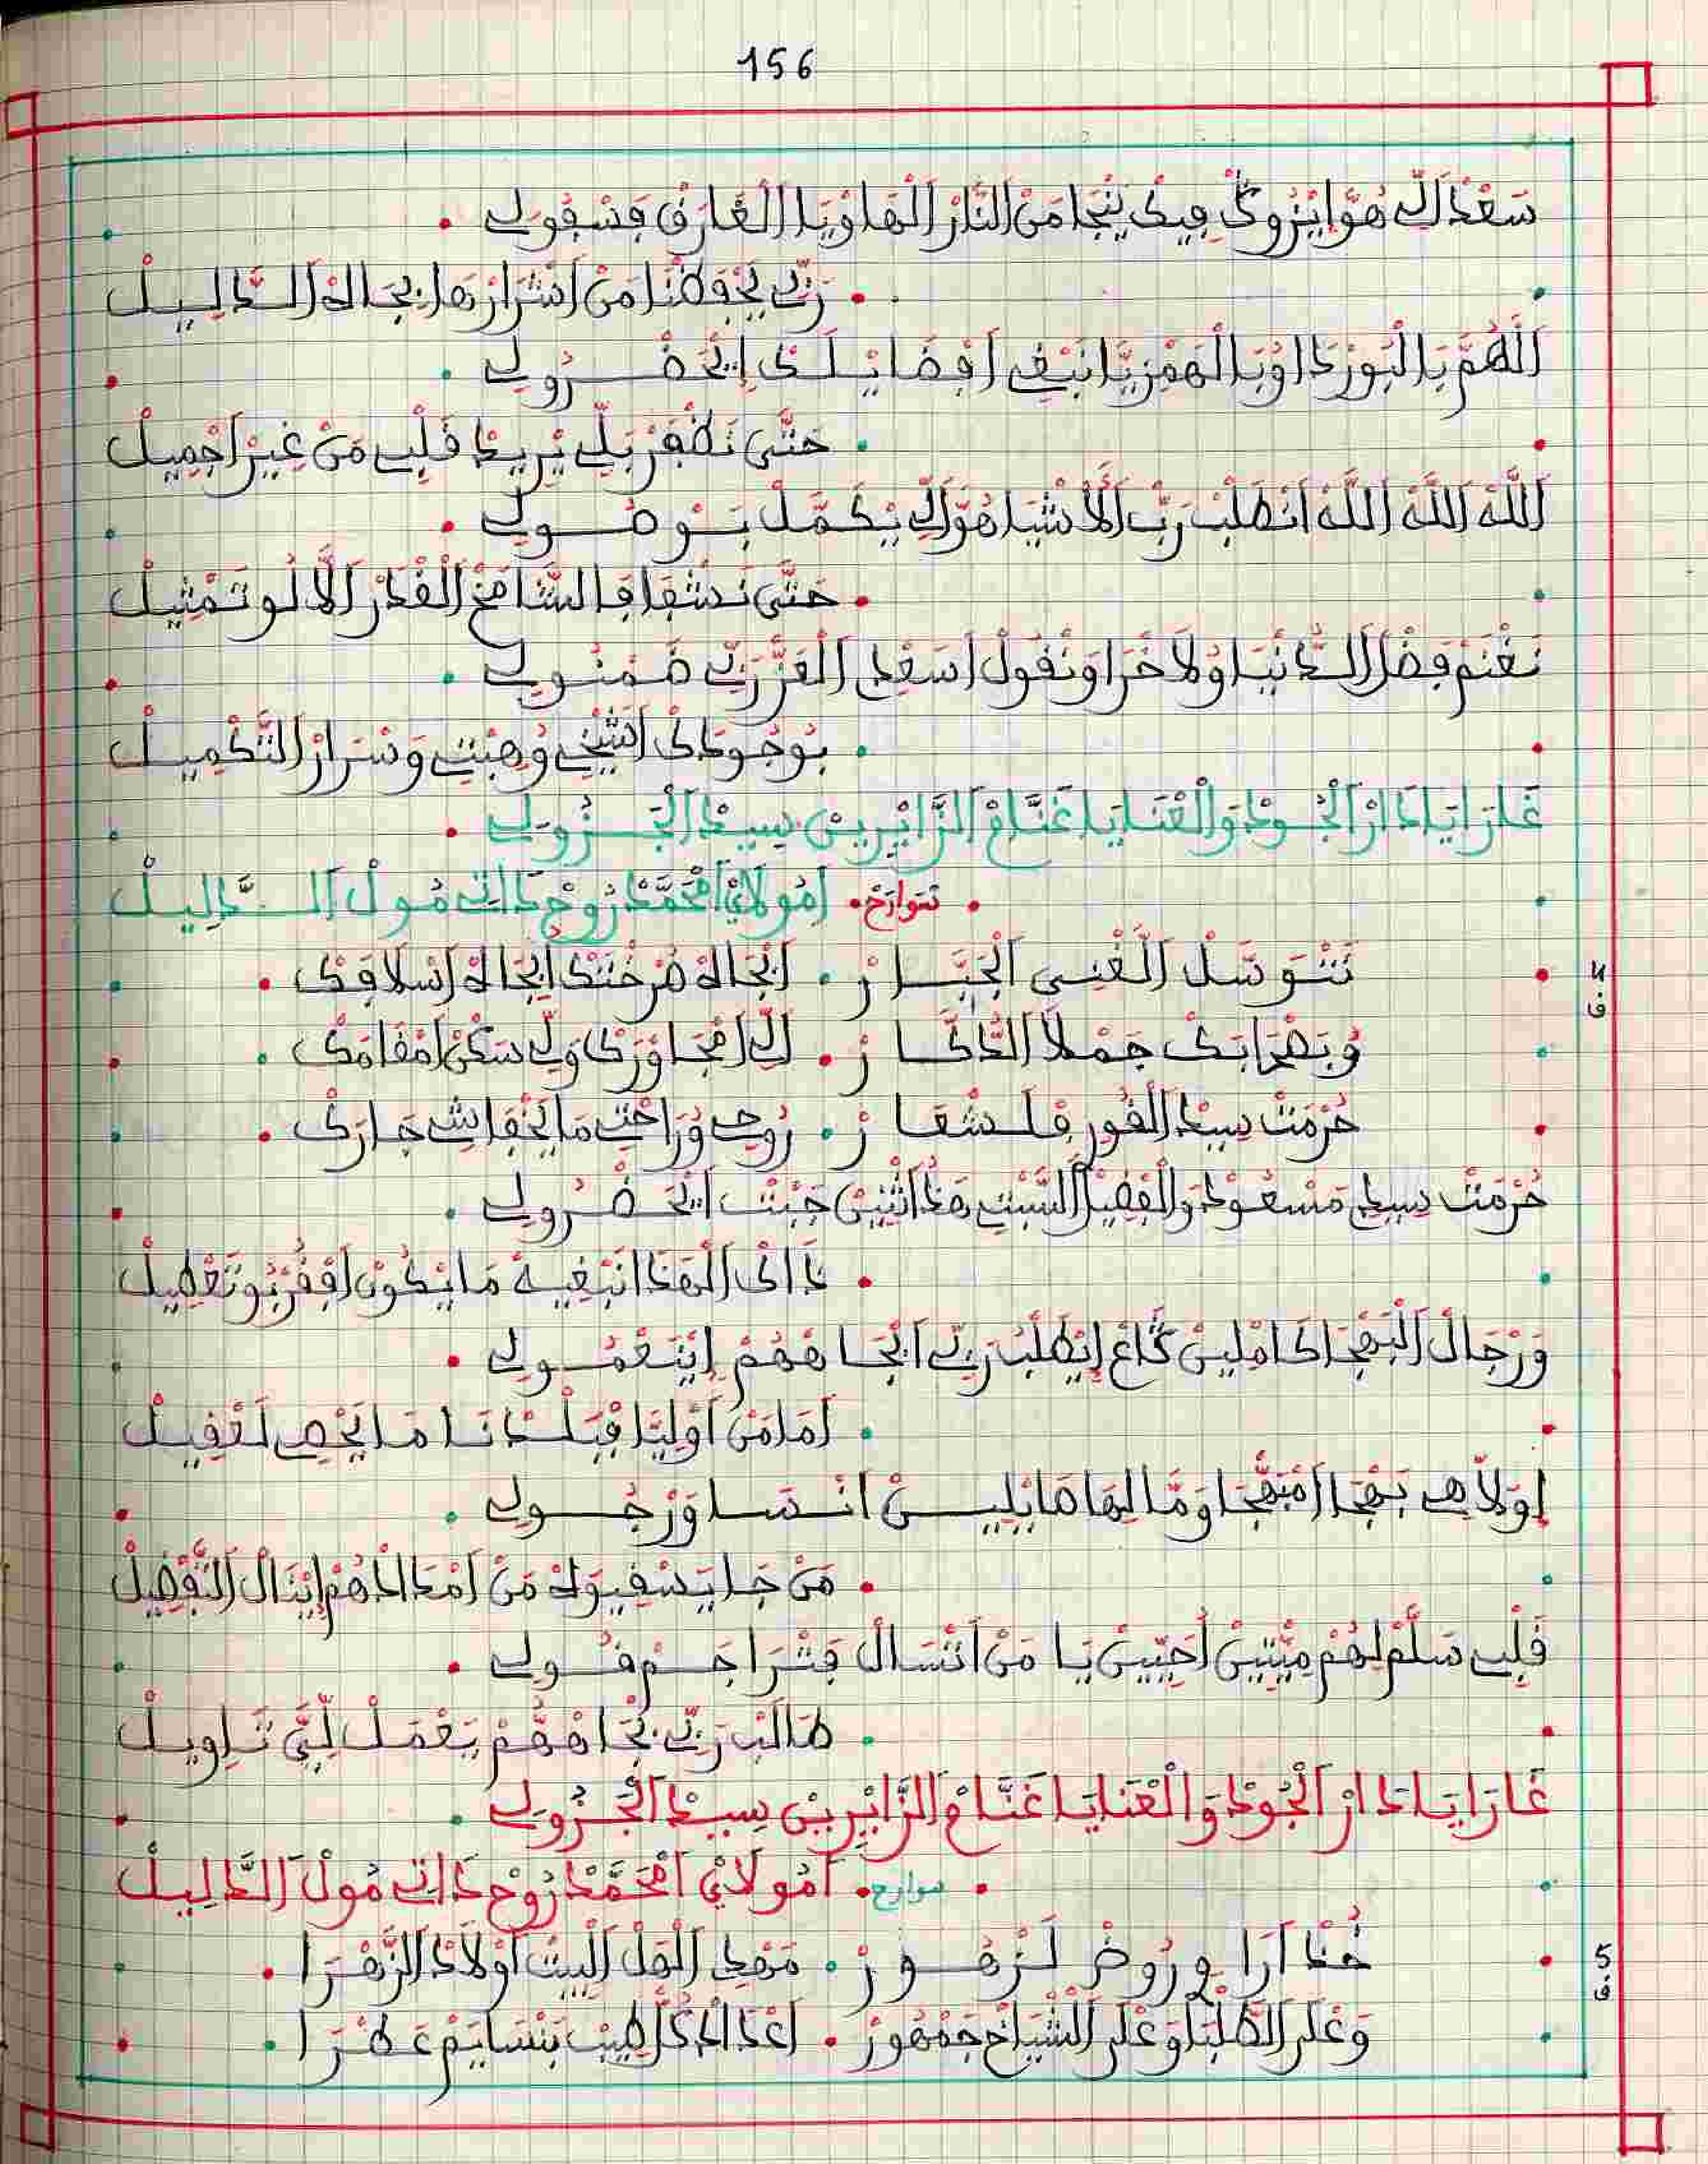 156
سَعْدْ الِّي هُوَّا يْزُورَكْ فِيكْ يَنْجَا مَنْ النَّارْ الْهَاوْيَا الْغَارَقْ فَسْفُولِي
رَبِّي يَحْفَظْنَا مَنْ اشْرَارْهَا ابْجَاهْ الدَّلِيلْ
اللَّهُمَّ بَالْبُورْدَا اوْبَالْهَمْزِيَّا نَبْغِي افْضَايْلَكْ إيْحَضْرُو لِي
حَتَّى نَظْفَرْ بَلِّي يْرِيدْ قَلْبِي مَنْ غِيرْ اجْمِيلْ
اللَّهْ اللَّهْ اللَّهْ انْطَلْبْ رَبّْ الَاشْيَا هُوَّ الِّي يْكَمَّلْ بَوْصُولِي
حَتَّى نَشْفَا فَالشَّامَخْ الْقْدَرْ الَّا لُو تَمْثِيلْ
نَغْنَمْ فَضْلْ الدَّنْيَا وُلَاخْرَا وَنْقُولْ اسَعْدِي الْعَزّْ رَبِّي ضَمْنُو لِي
بُوجُودَكْ اشِّيخِي وُهِبْتِي وَسْرَارْ التَّكْمِيلْ
غَارَا يَادَارْ الْجُودْ وَالْعْنَايَا غَنَّامْ الزَّايْرِينْ سِيدْ الْجَزُولِي
تتوارخ امُولَايْ امْحَمَّدْ رُوحْ دَاتِي مُولْ الدَّلِيلْ
4 ف
نَتْوَسَّلْ الَلْغْنِي الْجَبَّارْ ابْجَاهْ فَرْخْتَكْ ابْجَاهْ اسْلَافَكْ
وُبَضْرَابَكْ جَمْلَا الدَّكَّارْ الِّي امْجَاوْرَكْ وَلِّي سَكْنْ امْقَامَكْ
حُرْمَتْ سِيدْ الْغُورْ فَلَشْعَارْ رُوحِي وُرَاحْتِي مَا يَخْفَاشِي جَارَكْ
حُرْمَتْ سِيدِي مَسْعُودْ وَالْفْضِيلْ السَّبْتِي هَدْ اثْنِينْ جَبْتْ ايْحَضْرُو لِي
دَاكْ الْهَدَا نَبْغِيهْ مَا يْكُونْ افْقُرْبُو تَعْطِيلْ
وَرْجَالْ الْبَهْجَا كَامْلِينْ كَّاعْ إنْطَلْبْ رَبِّي ابْجَاهْهُمْ إيْنَعْمُو لِي
امَا مَنْ اوْلِيَا فْبَلْدَانَا مَا يَحْصِي لَعْقِيلْ
اوَلَّا هِي بَهْجَا امْبَهْجَا وَمَّالِيهَا هَايْلِينْ انْسَا وَرْجُولِي
مَنْ جَا يَسْقِيوَهْ مَنْ امْدَادْهُمْ إيْنَالْ التَّفْضِيلْ
قَلْبِي سَلَّمْ لِهُمْ مِيّْتِينْ أَحِيّْينْ يَا مَنْ اتْسَالْ فَتْرَاجَمْ قُولِي
طَالَبْ رَبِّي بْجَاهْهُمْ يَعْمَلْ لِيَّ تَاوِيلْ
غَارَا يَادَارْ الْجُودْ وَالْعْنَايَا غَنَّامْ الزَّايْرِينْ سِيدْ الْجَزُولِي
سوارح امُولَايْ امْحَمَّدْ رُوحْ دَاتِي مُولْ الدَّلِيلْ
5 ف
خُدْ ارَاوِي رُوضْ لَزْهُورْ مَهْدِي الَهْلْ الْبِيتْ اوْلَادْ الزَّهْرَا
وَعْلَى الطَّلْبَا وَعْلَى الشْيَاخْ جَمْهُورْ اعْدَادْ كُلّْ طِيبْ بَنْسَايَمْ عَطْرَا